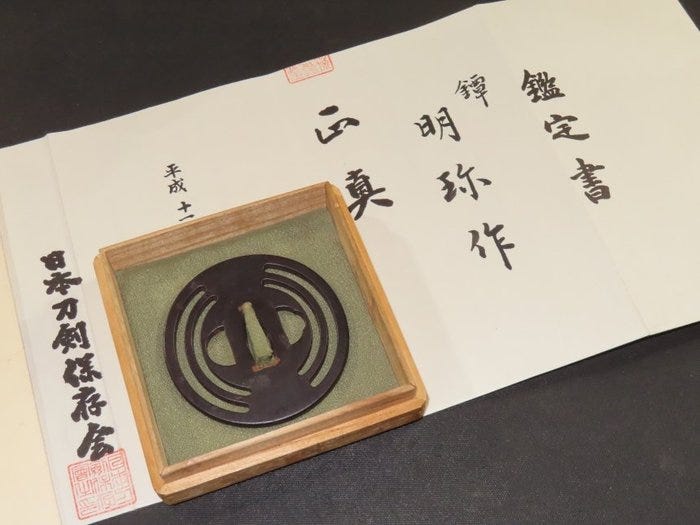 鑑定書
鐔
明珎作
正真
平成十一
日本刀剣保存会